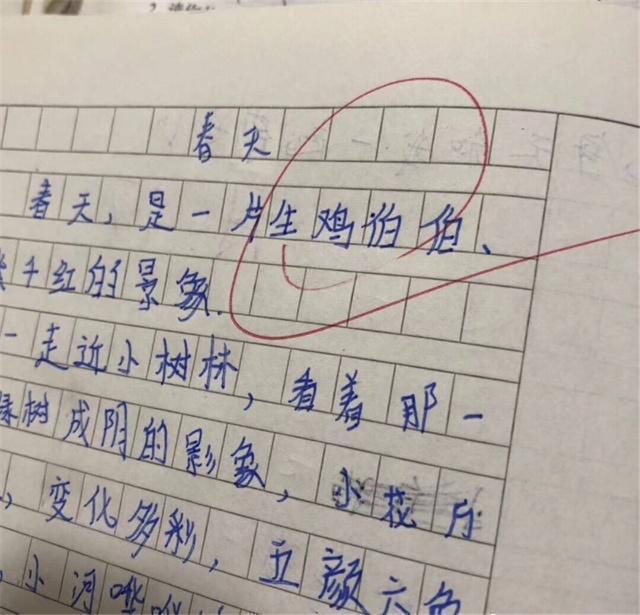 春天
春天，是一片生鸡伯伯、
千红的景象.
一走近小树林，看着那一
树成阴的影象，小花所
，变化多彩，五颜六色
，小河哗